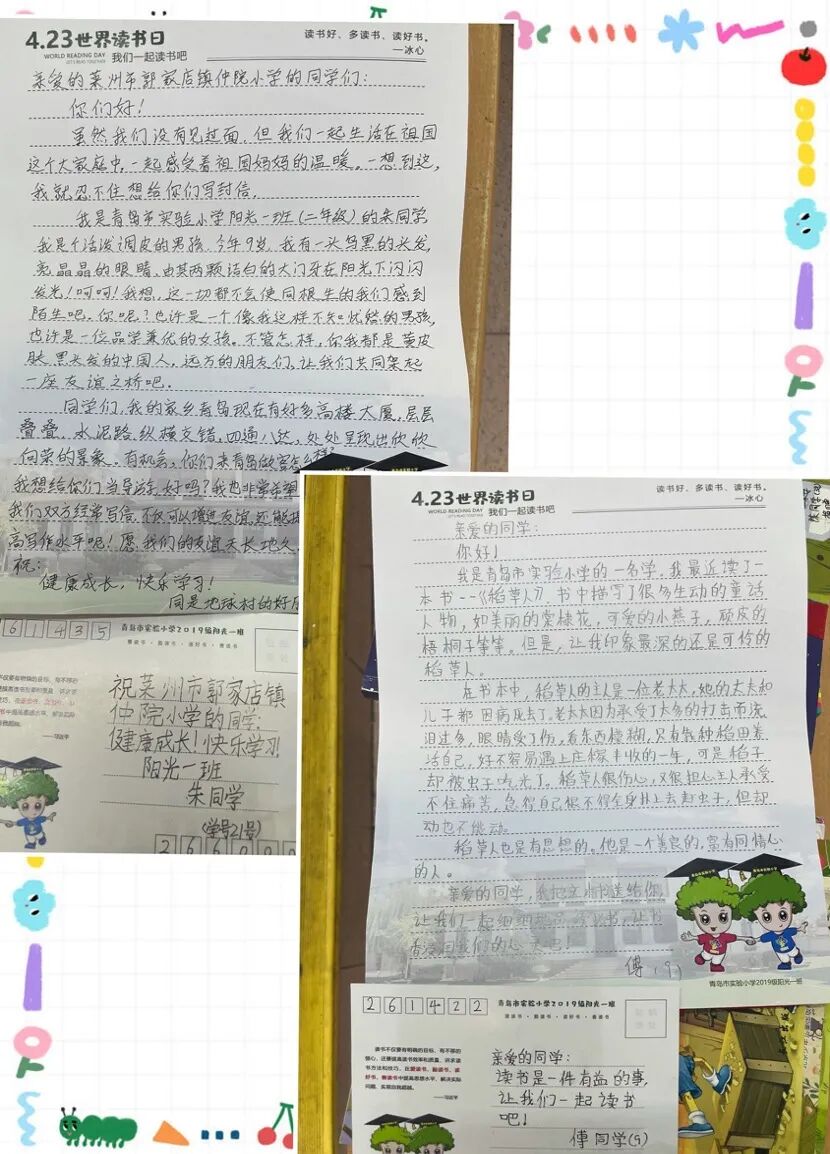 4.23世界读书日
WORLD READING DAY 我们一起读书吧
LET'S READ TOGETHER
读书好、多读书、读好书。
—冰心
亲爱的莱州市郭家店镇仲院小学的同学们:
你们好!
虽然我们没有见过面,但我们一起生活在祖国
这个大家庭中,一起感受着祖国妈妈的温暖。一想到这,
我就忍不住想给你们写封信。
我是青岛市实验小学阳光一班(二年级)的朱同学
我是个活泼调皮的男孩.今年9岁.我有一头乌黑的头发,
亮晶晶的眼睛,尤其两颗洁白的大门牙在阳光下闪闪
发光!呵呵!我想,这一切都不会使同根生的我们感到
陌生吧。你呢?也许是一个像我这样不知忧愁的男孩,
也许是一位品学兼优的女孩。不管怎样,你我都是黄皮
肤.黑头发的中国人,远方的朋友们,让我们共同架起
一座友谊之桥吧。
同学们,我的家乡青岛现在有好多高楼大厦,层层
叠叠。水泥路纵横交错,四通八达,处处呈现出欣欣
向荣的景象。有机会,你们来青岛做客怎么样?
我想给你们当导游,好吗?我也非常希望
我们双方经常写信,不仅可以增进友谊,还能提
高写作水平呢!愿我们的友谊天长地久
祝:
健康成长,快乐学习!
同是地球村的好
61435
青岛市实验小学2019级阳光一班
祝莱州市郭家店镇
仲院小学的同学:
健康成长!快乐学习
阳光一班
朱同学
(学号21号)
2660
4.23世界读书日
WORLD READING DAY 我们一起读书吧
LET'S READ TOGETHER
读书好、多读书、读好书。
—冰心
亲爱的同学:
你好!
我是青岛市实验小学的一名学,我最近读了一
本书--《稻草人》,书中描写了很多生动的童话
人物,如美丽的棠棣花,可爱的小燕子,顽皮的
梧桐子等等。但是,让我印象最深的还是可怜的
稻草人。
在书本中,稻草人的主人是一位老太太,她的丈夫和
儿子都因病死去了。老太太因为承受了太多的打击而流
泪过多,眼睛受了伤,看东西模糊,只有靠种稻田养
活自己,好不容易遇上庄稼丰收的一年,可是稻子
却被虫子吃光了。稻草人很伤心,又很担心主人承受
不住痛苦,急得自己恨不得全身扑上去赶虫子,但却
动也不能动。
稻草人也是有思想的。他是一个善良的,富有同情心
的人。
亲爱的同学,我把这本书送给你,
让我们一起细细地品读此书,让书
香浸润我们的心吧!
傅(9)
青岛市实验小学2019级阳光一班
261422
青岛市实验小学2019级阳光一班
读书不仅要有明确的目标、有不移的
恒心,还要提高读书效率和质量,讲求读
书方法和技巧,在爱读书、勤读书、读
好书、善读书中提高思想水平、解决实际
问题、实现自我超越。
——习近平
亲爱的同学:
读书是一件有益的事,
让我们一起读书
吧!
傅同学(9)